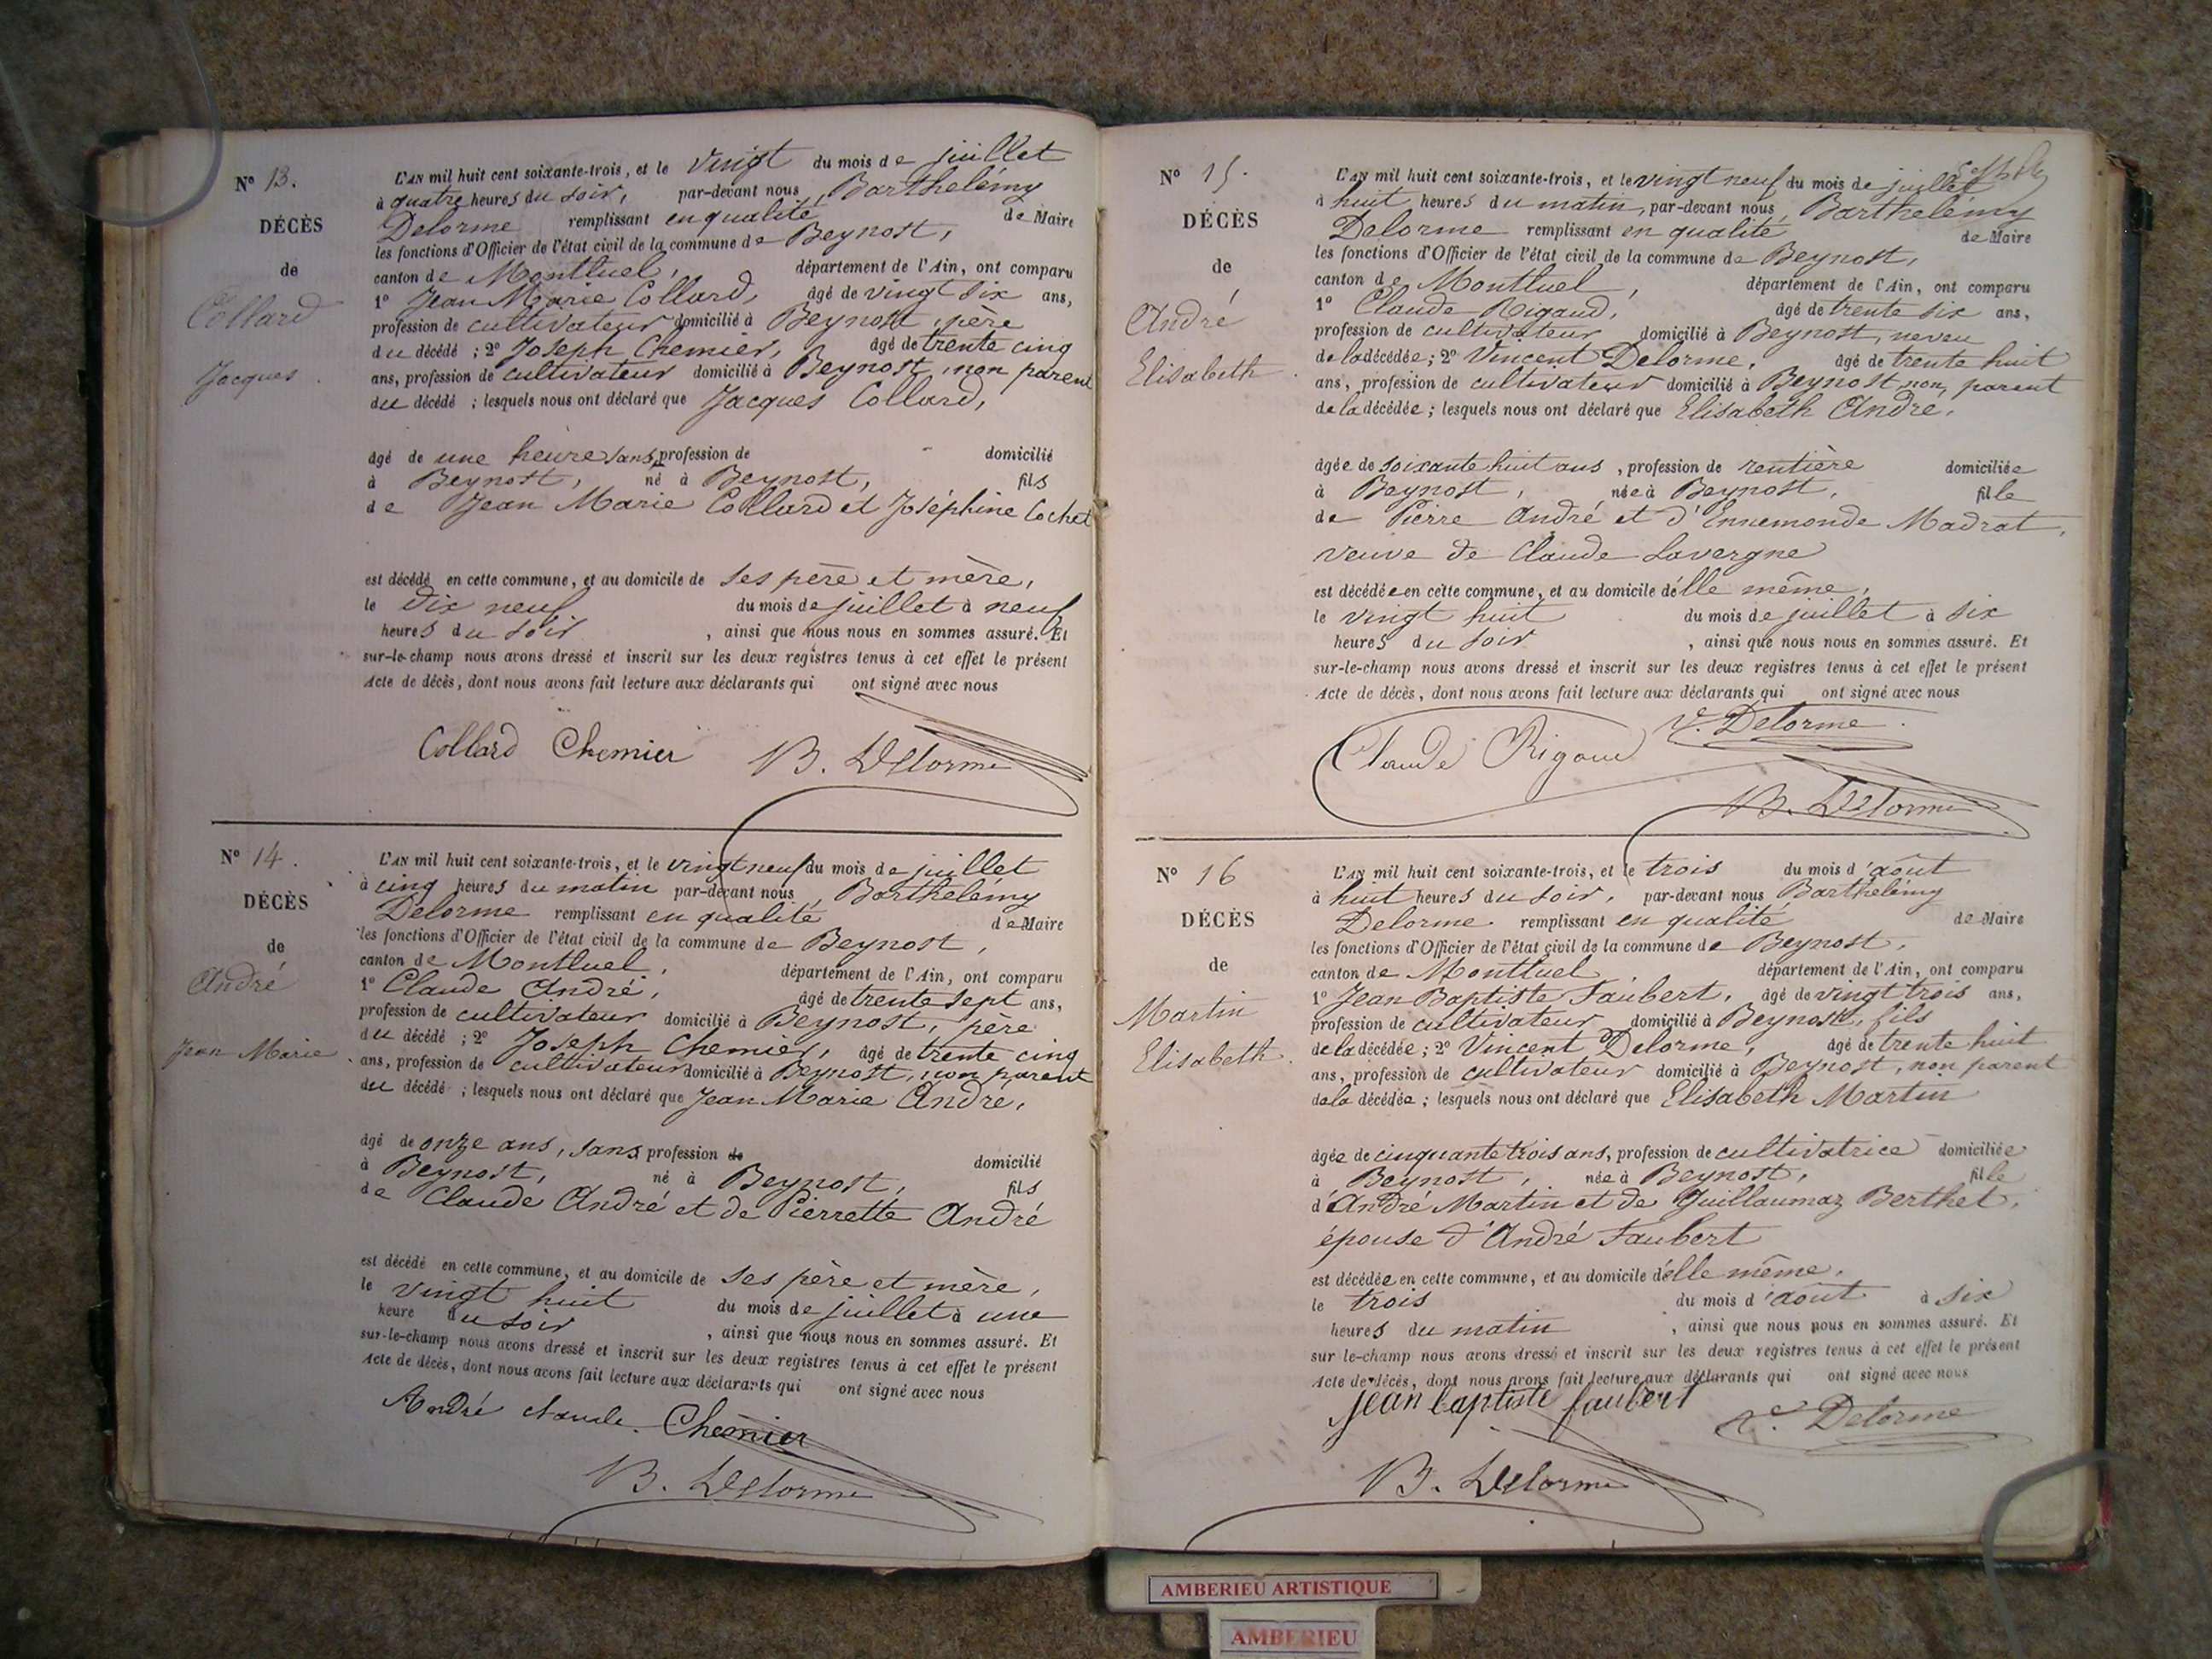 N° 13.
DÉCÈS
de
Collard
Jacques.
L'AN mil huit cent soixante-trois, et le vingt du mois de juillet
à quatre heures du soir, par-devant nous, Barthelémy
Delorme remplissant en qualité de Maire
les fonctions d'Officier de l'état civil de la commune de Beynost,
canton de Montluel, département de l'Ain, ont comparu
1° Jean Marie Collard, âgé de vingt six ans,
profession de cultivateur domicilié à Beynost, père
du décédé ; 2° Joseph Chemier, âgé de trente cinq
ans, profession de cultivateur domicilié à Beynost, non parent
du décédé ; lesquels nous ont déclaré que Jacques Collard,
âgé de une heure, sans profession de domicilié
à Beynost, né à Beynost, fils
de Jean Marie Collard et Joséphine Cochet
est décédé en cette commune, et au domicile de ses père et mère,
le dix neuf du mois de juillet à neuf
heures du soir, ainsi que nous nous en sommes assuré. Et
sur-le-champ nous avons dressé et inscrit sur les deux registres tenus à cet effet le présent
Acte de décès, dont nous avons fait lecture aux déclarants qui ont signé avec nous
Collard Chemier B. Delorme
N° 14.
DÉCÈS
de
André
Jean Marie.
L'AN mil huit cent soixante-trois, et le vingt neuf du mois de juillet
à cinq heures du matin par-devant nous, Barthelémy
Delorme remplissant en qualité de Maire
les fonctions d'Officier de l'état civil de la commune de Beynost,
canton de Montluel, département de l'Ain, ont comparu
1° Claude André, âgé de trente sept ans,
profession de cultivateur domicilié à Beynost, père
du décédé ; 2° Joseph Chemier, âgé de trente cinq
ans, profession de cultivateur domicilié à Beynost, non parent
du décédé ; lesquels nous ont déclaré que Jean Marie André,
âgé de onze ans, sans profession de domicilié
à Beynost, né à Beynost, fils
de Claude André et de Pierrette André
est décédé en cette commune, et au domicile de ses père et mère,
le vingt huit du mois de juillet à une
heure du soir, ainsi que nous nous en sommes assuré. Et
sur-le-champ nous avons dressé et inscrit sur les deux registres tenus à cet effet le présent
Acte de décès, dont nous avons fait lecture aux déclarants qui ont signé avec nous
André claude. Chemier
B. Delorme
N° 15.
DÉCÈS
de
André
Elisabeth.
L'AN mil huit cent soixante-trois, et le vingt neuf du mois de juillet
à huit heures du matin, par-devant nous, Barthelémy
Delorme remplissant en qualité de Maire
les fonctions d'Officier de l'état civil de la commune de Beynost,
canton de Montluel, département de l'Ain, ont comparu
1° Claude Rigaud, âgé de trente six ans,
profession de cultivateur domicilié à Beynost, neveu
de la décédée ; 2° Vincent Delorme, âgé de trente huit
ans, profession de cultivateur domicilié à Beynost, non parent
de la décédée ; lesquels nous ont déclaré que Elisabeth André,
âgée de soixante huit ans, profession de rentière domiciliée
à Beynost, née à Beynost, fille
de Pierre André et d'Ennemonde Madrat,
veuve de Claude Lavergne
est décédée en cette commune, et au domicile d'elle même,
le vingt huit du mois de juillet à six
heures du soir, ainsi que nous nous en sommes assuré. Et
sur-le-champ nous avons dressé et inscrit sur les deux registres tenus à cet effet le présent
Acte de décès, dont nous avons fait lecture aux déclarants qui ont signé avec nous
Claude Rigaud Vt. Delorme
B. Delorme
N° 16
DÉCÈS
de
Martin
Elisabeth.
L'AN mil huit cent soixante-trois, et le trois du mois d'août
à huit heures du soir, par-devant nous Barthelémy
Delorme remplissant en qualité de Maire
les fonctions d'Officier de l'état civil de la commune de Beynost,
canton de Montluel, département de l'Ain, ont comparu
1° Jean Baptiste Faubert, âgé de vingt trois ans,
profession de cultivateur domicilié à Beynost, fils
de la décédée ; 2° Vincent Delorme, âgé de trente huit
ans, profession de cultivateur domicilié à Beynost, non parent
de la décédée ; lesquels nous ont déclaré que Elisabeth Martin
âgée de cinquante trois ans, profession de cultivatrice domiciliée
à Beynost, née à Beynost, fille
d'André Martin et de Guillaumaz Berthet,
épouse d'André Faubert
est décédée en cette commune, et au domicile d'elle même,
le trois du mois d'août à six
heures du matin, ainsi que nous nous en sommes assuré. Et
sur-le-champ nous avons dressé et inscrit sur les deux registres tenus à cet effet le présent
Acte de décès, dont nous avons fait lecture aux déclarants qui ont signé avec nous
jean baptiste faubert Vt. Delorme
B. Delorme
AMBERIEU ARTISTIQUE
AMBERIEU